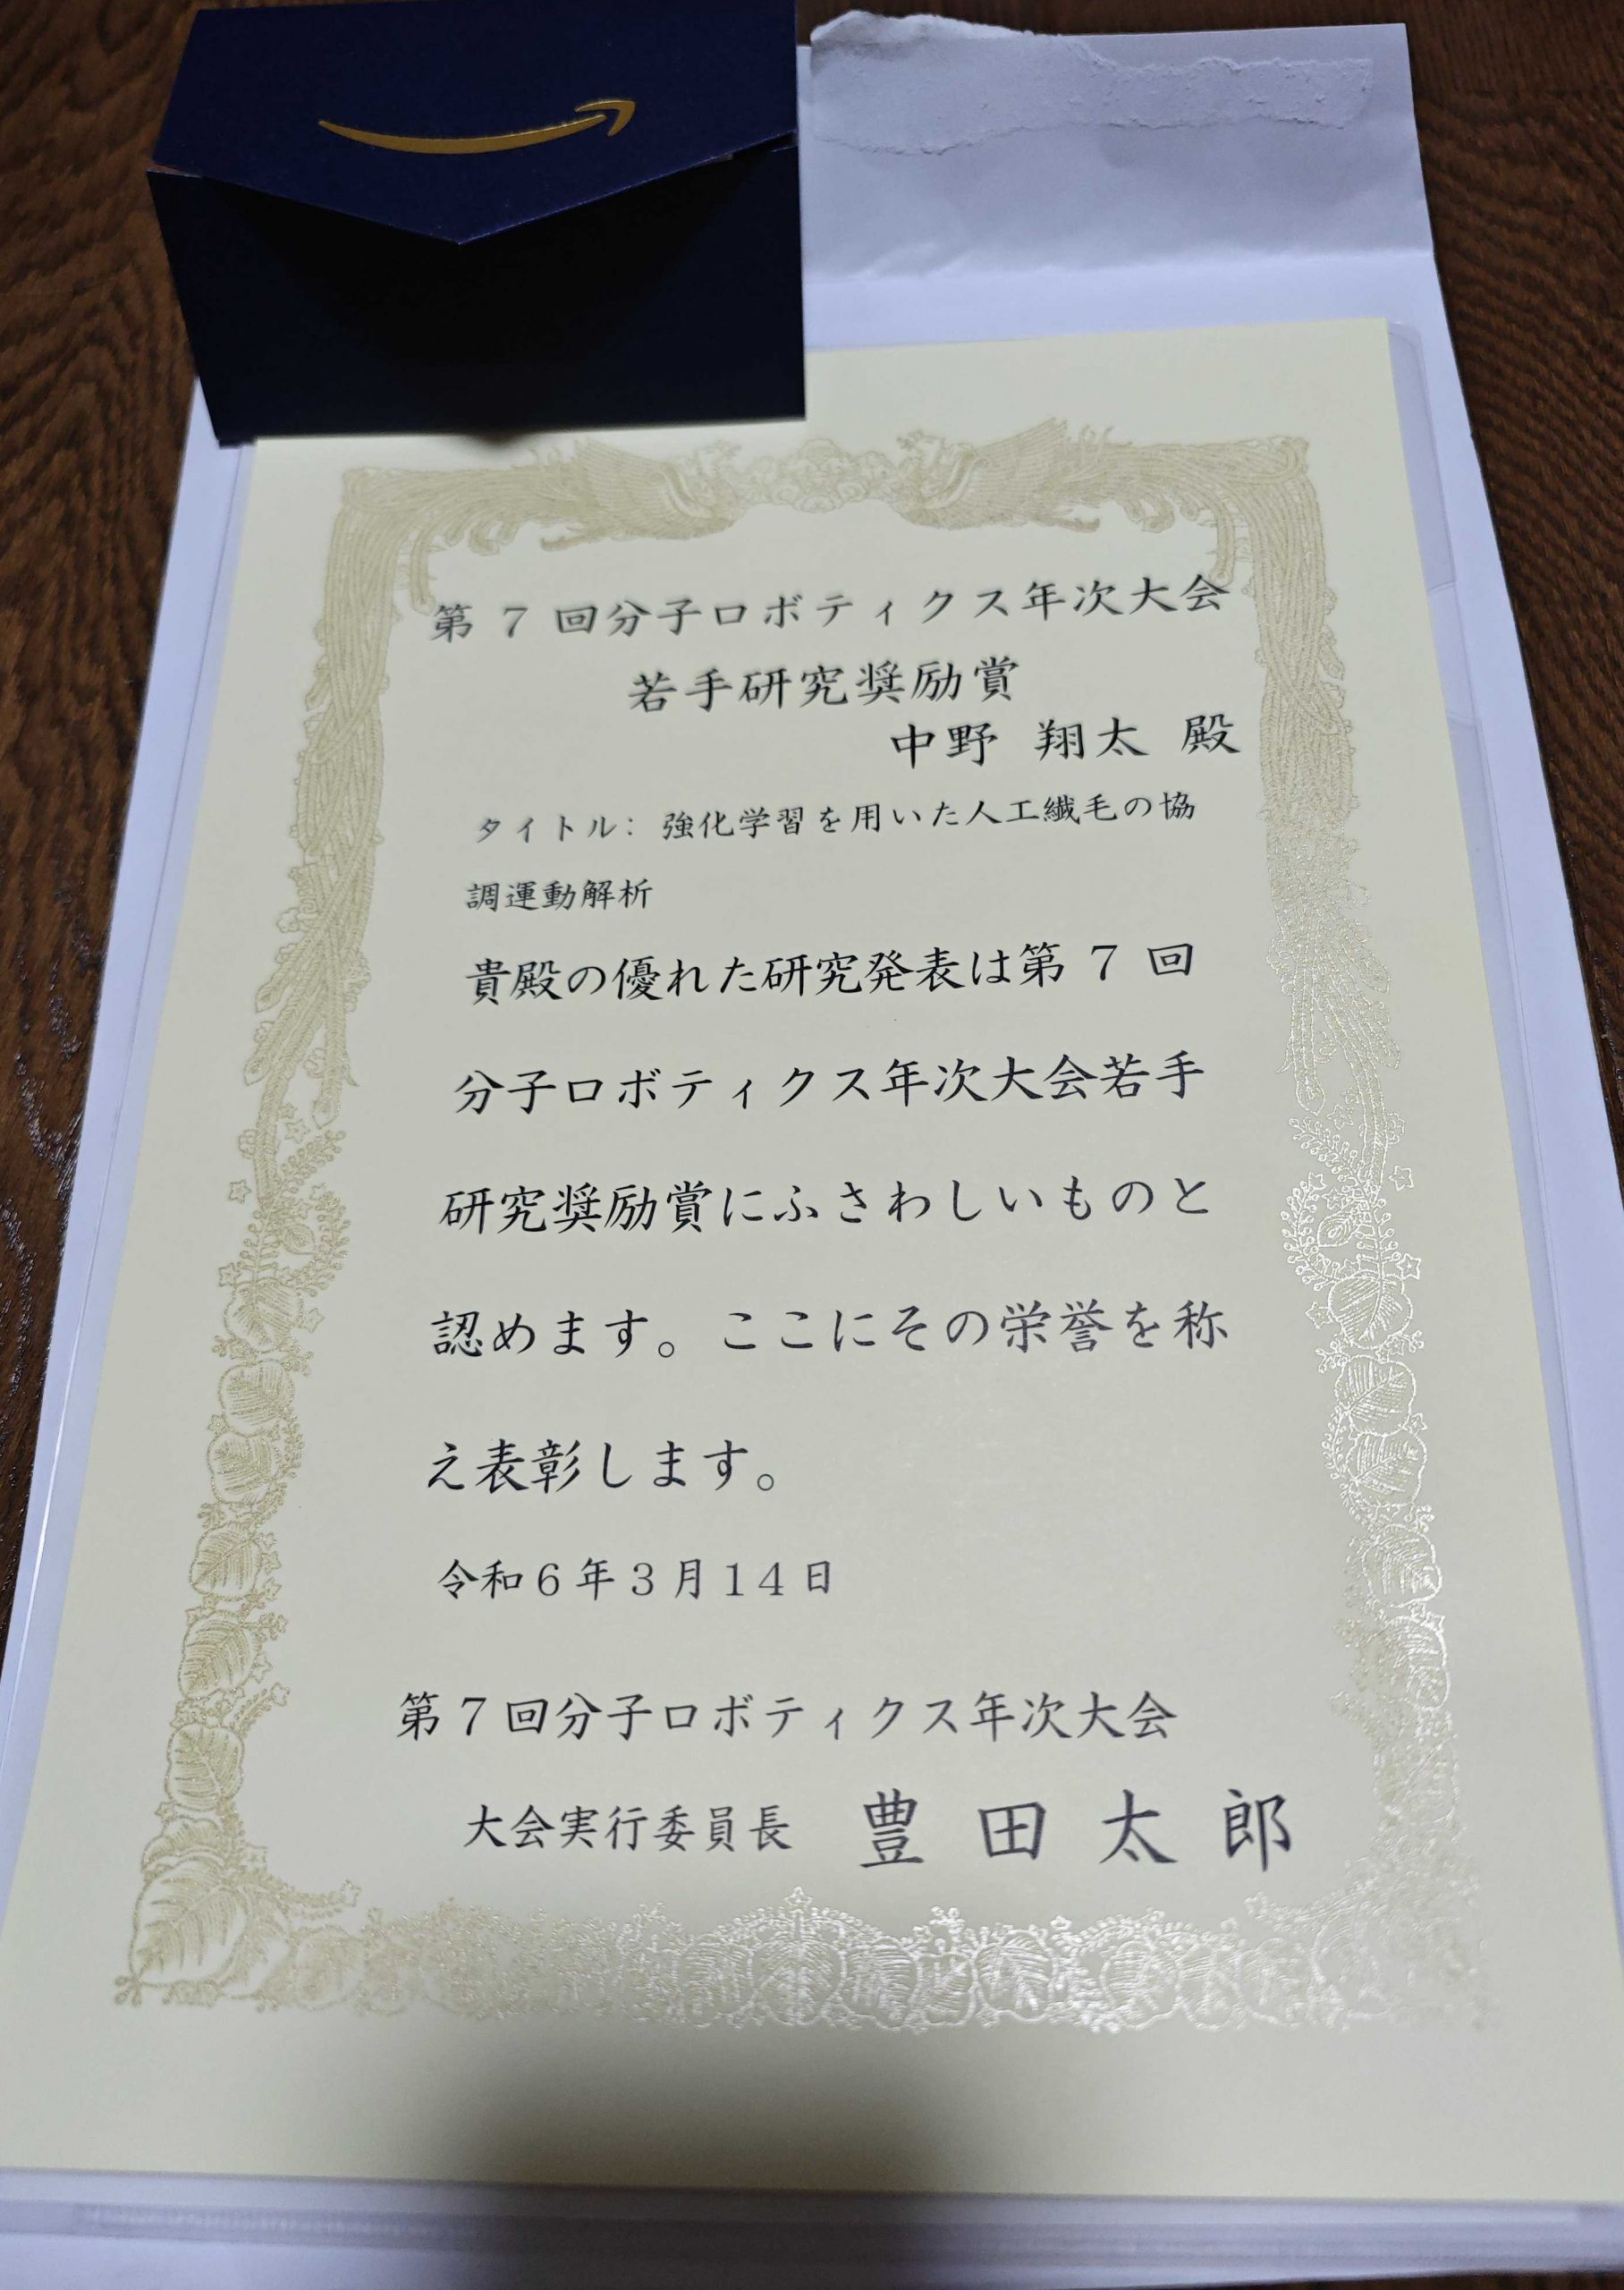 第 7 回分子ロボティクス年次大会
若手研究奨励賞
中野 翔太 殿
タイトル: 強化学習を用いた人工繊毛の協
調運動解析
貴殿の優れた研究発表は第 7 回
分子ロボティクス年次大会若手
研究奨励賞にふさわしいものと
認めます。ここにその栄誉を称
え表彰します。
令和6年3月14日
第7回分子ロボティクス年次大会
大会実行委員長 豊田太郎